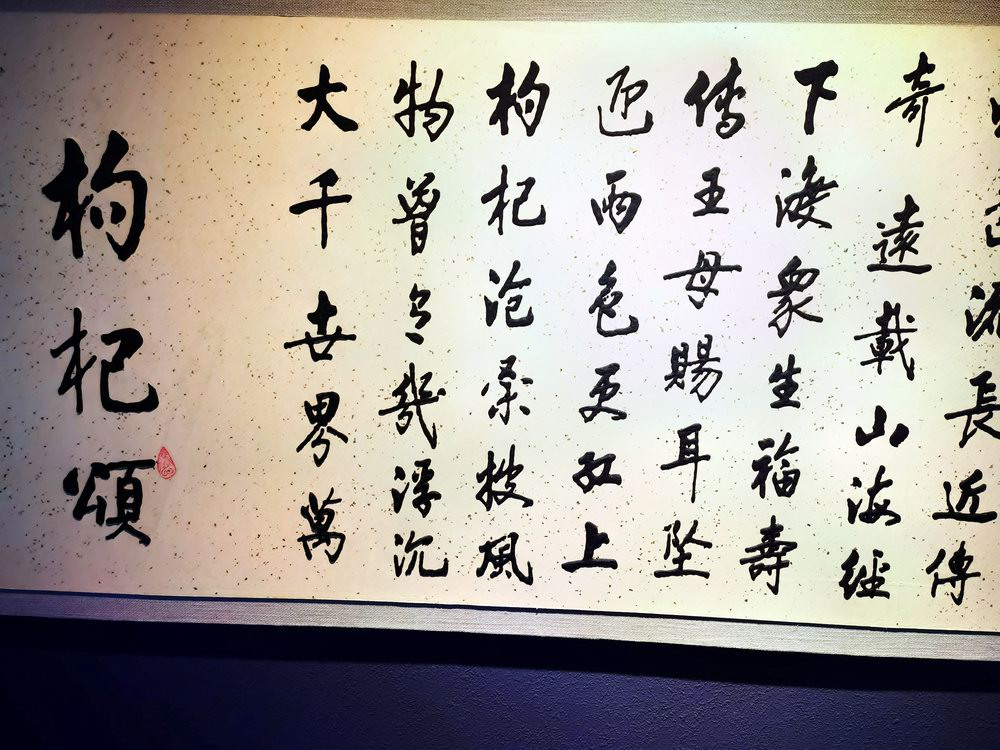 枸杞頌
大千世界萬
物曾幾浮沉
枸杞滄桑披風
迎雨色更紅上
傳王母賜耳墜
下渡眾生福壽
奇遠載山海經
長近傳